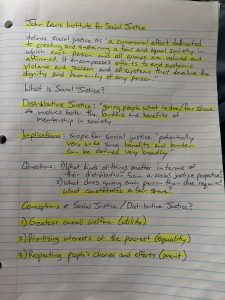 John Lewis Institute for Social Justice
defines social justice as "a communal effort dedicated
to creating and sustaining a fair and equal society in
which each person and all groups are valued and
affirmed. It encompasses efforts to end systemic
violence and racism and all systems that devalue the
dignity and humanity of any person."
What is Social Justice?
Distributive Justice: "giving people what is due/fair share
→ involves both the burdens and benefits of
membership in society
Implications: scope for social justice "potentially
very wide since benefits and burden
can be defined very broadly
Questions: 1) What kinds of things matter in terms of
their distribution from a social justice perspective?
2) What does giving each person their due require/
what constitutes a fair share?
Conceptions of Social Justice / Distributive Justice?
1) Greatest overall welfare (utility)
2) Prioritising interests of the poorest (equality)
3) Respecting people's choices and efforts (merit)